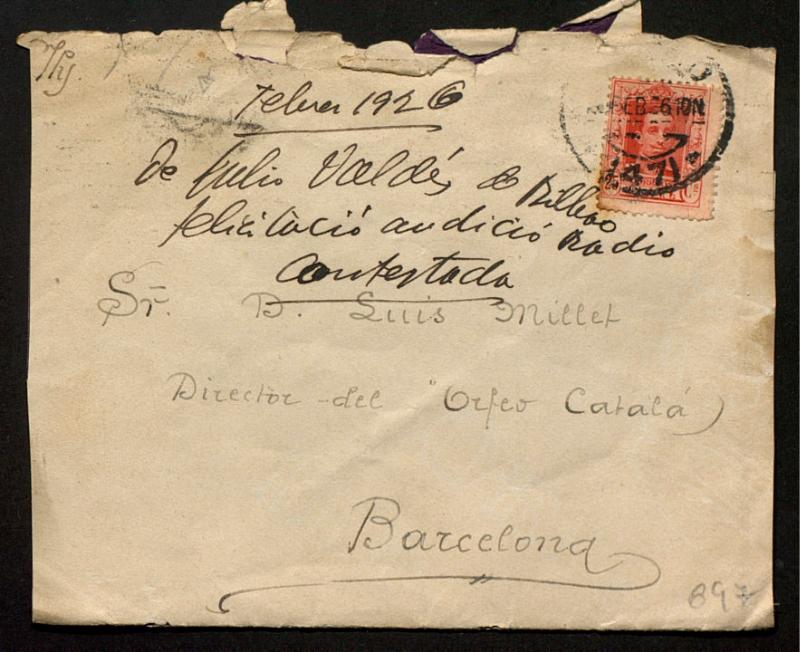 Febrer 1926
De Julio Valdés de Bilbao
felicitació audició Radio
Contestada
Sr. D. Luis Millet
Director del "Orfeo Catalá"
Barcelona
897
FEB 26 10N